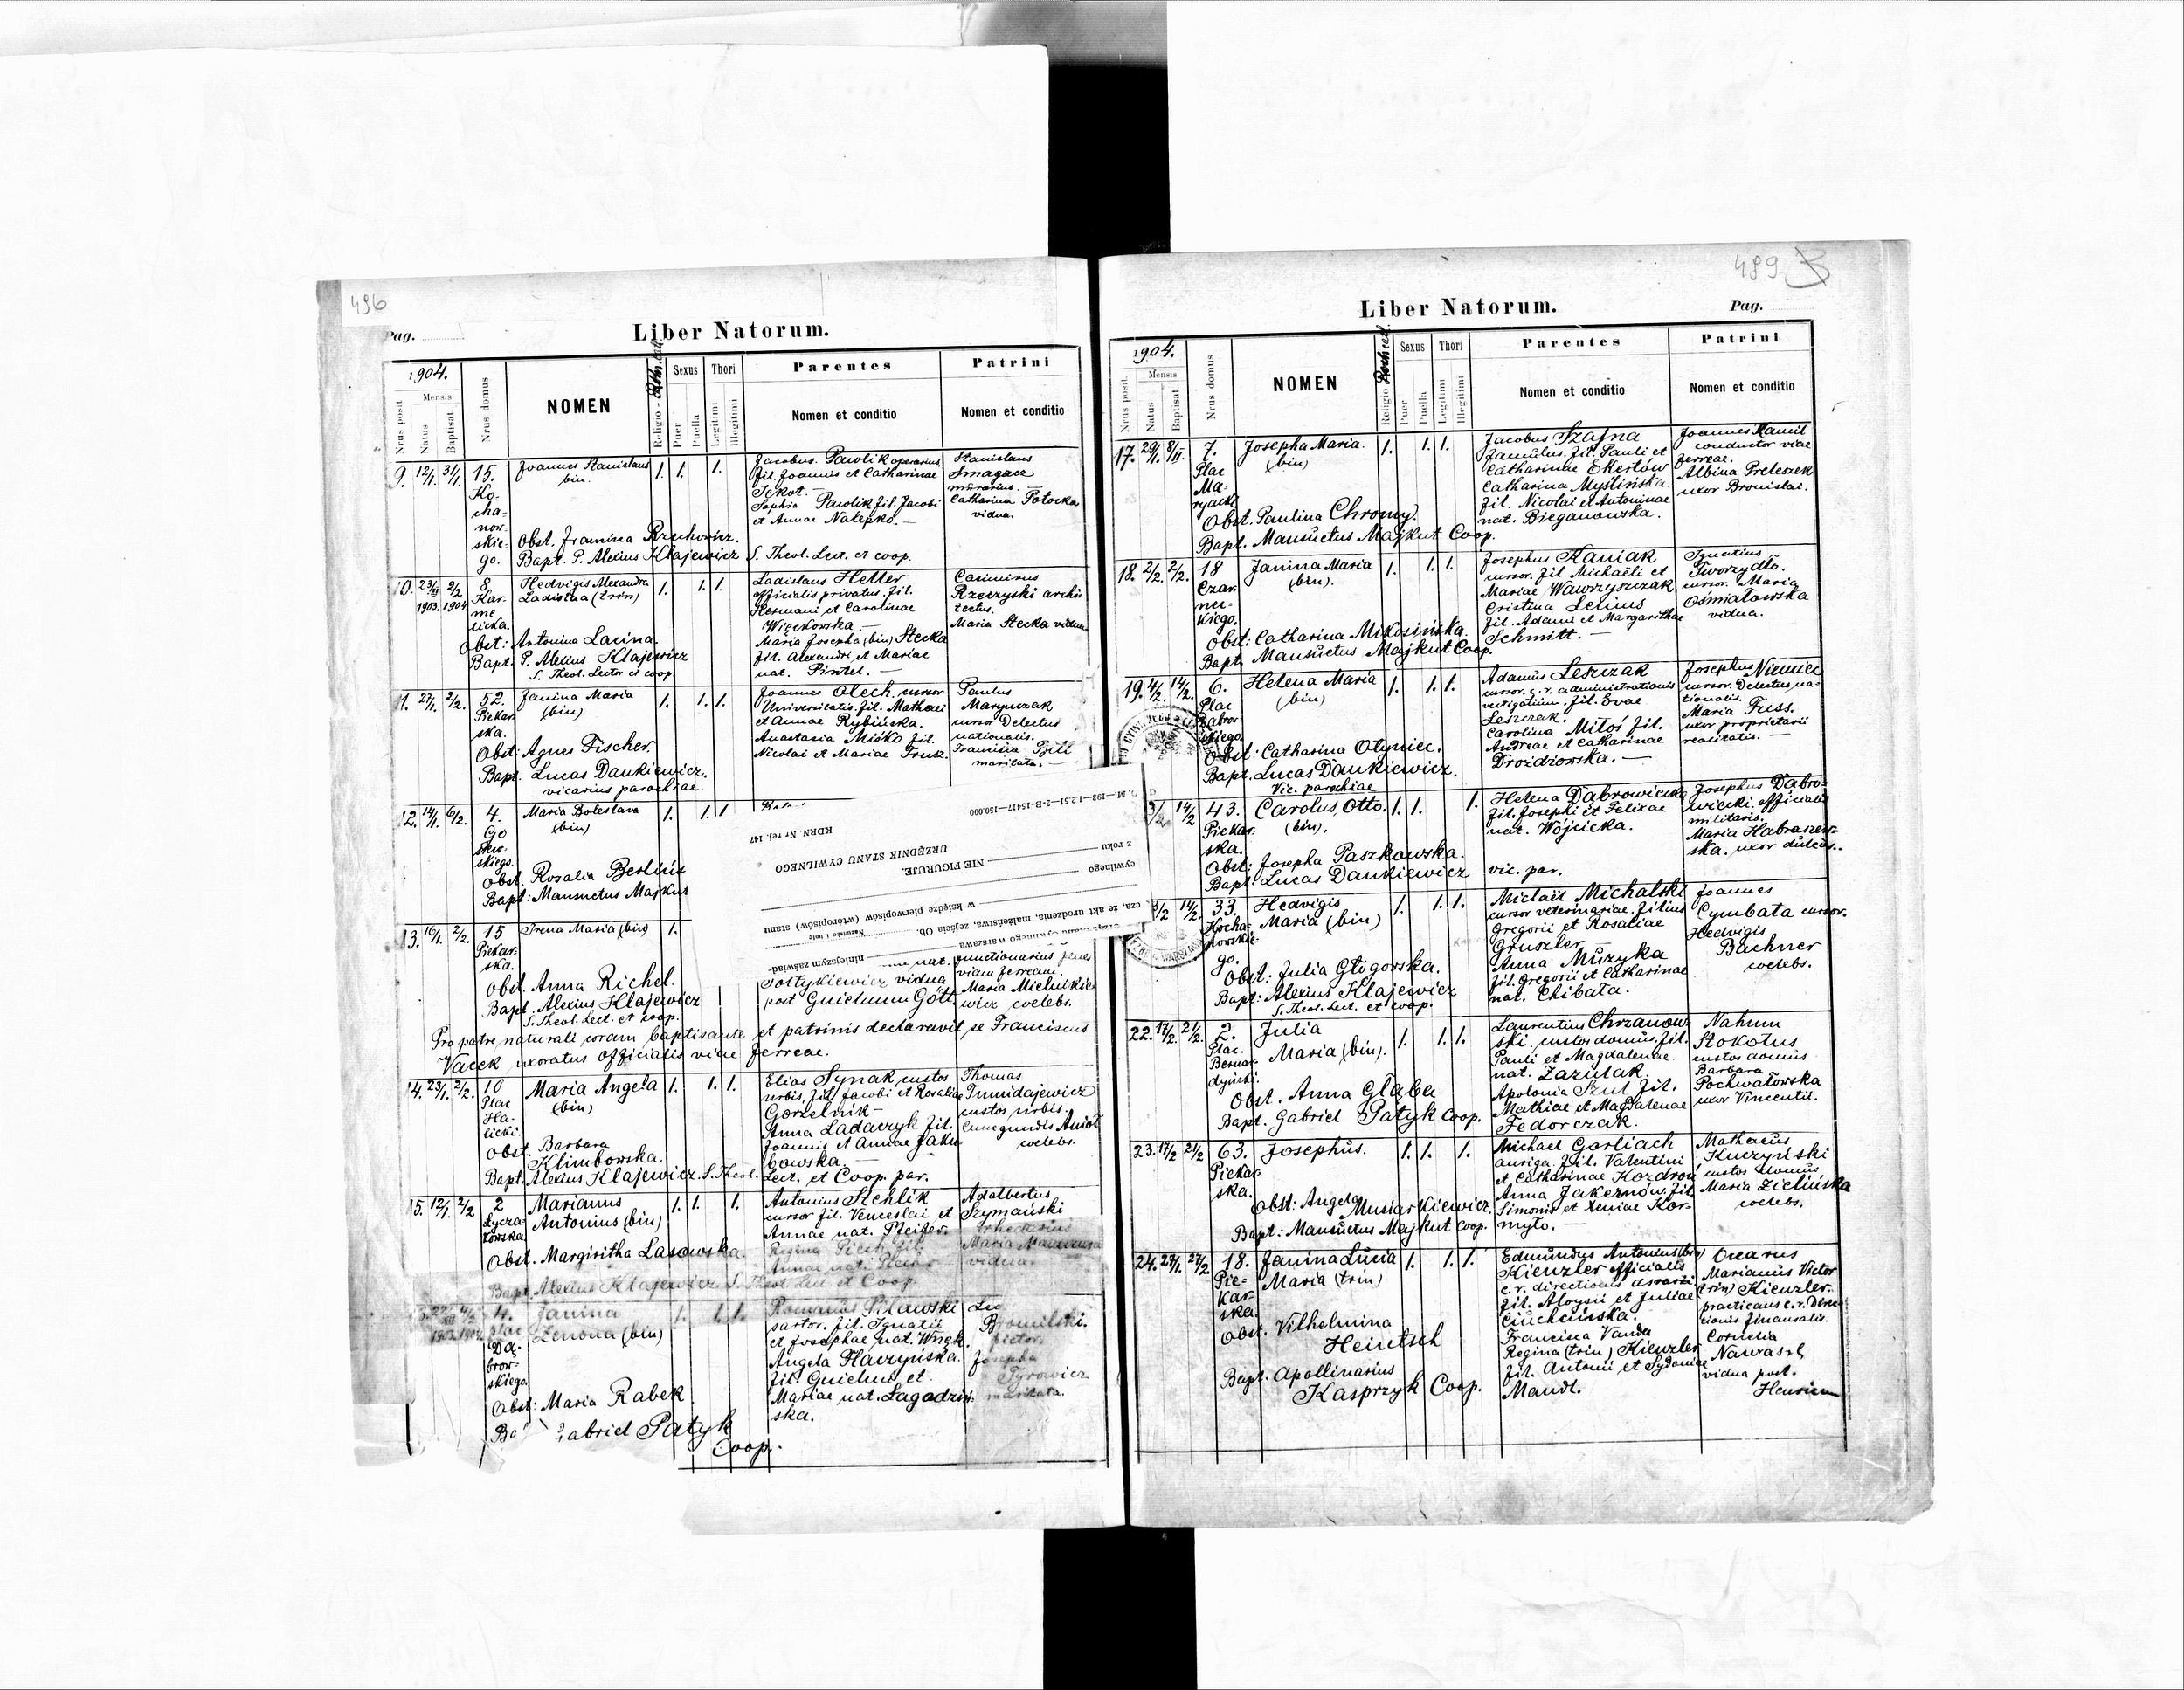 496
Pag.
Liber Natorum.
1904.
Mensis
Nrus posit.
Natus
Baptisat.
Nrus domus
NOMEN
Religio
Sexus
Puer
Puella
Thori
Legitimi
Illegitimi
Parentes
Nomen et conditio
Patrini
Nomen et conditio
9. 12/1. 31/1. 15. Joannes Stanislaus 1. 1. 1.
bin.
Ko-
cha-
now-
skie-
go.
Obst. Francisca
Bapt. P. Alexius Klajewicz S. Theol. Lect. et coop.
Jacobus Pawlik operarius
fil. Joannis et Catharinae
Sophia Pawlik fil. Jacobi
et Annae Nalepko. —
Stanislaus
Smagacz
murarius. —
Catharina Potocka
vidua.
2/2.
1903. 1904. 8
Kar-
me
licka.
Hedvigis Alexandra
Ladislaa (trin) 1. 1. 1.
Obst: Antonina Lacina.
Bapt. P. Alexius Klajewicz
S. Theol. Lector et coop.
Ladislaus Heller
officialis privatus. fil.
Hermani et Carolinae
Więckowska. —
Maria Josepha (bin) Stecka
fil. Alexandri et Mariae
nat. —
Casimirus
Rzeczyski archi
tectus.
Maria Stecka vidua
1. 27/1. 2/2. 52. Janina Maria 1. 1. 1.
Piekar-
ska. (bin)
Obst: Agnes Fischer.
Bapt. Lucas Dankiewicz.
vicarius parochiae.
Joannes Olech. cursor
Universitatis. fil. Mathaei
et Annae Rybińska.
Anastasia Miśko fil.
Nicolai et Mariae
Paulus
cursor Delectus
nationalis.
maritata. —
2. 14/1. 6/2. 4. Maria Boleslava 1. 1. 1
(bin)
Obst. Rosalia
Bapt: Mansuetus Majkut
150.000—15417—B—2—1.2.51—193
KDRN. Nr rej. 147
URZĘDNIK STANU CYWILNEGO
z roku
NIE FIGURUJE.
cywilnego
w księdze pierwopisów (wtoropisów) stanu
Nazwisko i imię
cza, że akt urodzenia, małżeństwa, zejścia Ob.
niniejszym zaświad-
3. 16/1. 2/2. 15 Irena Maria (bin) 1.
Piekar-
ska.
Obst. Anna Richel.
Bapt. Alexius Klajewicz
S. Theol. Lect. et coop.
Sołtykiewicz vidua
post Guielmum Gött
functionarius penes
viam ferream.
Maria Mielnikie
wicz coelebs.
Pro patre naturali coram baptisante et patrinis declaravit se Franciscus
Vacek uxoratus officialis viae ferreae.
4. 23/1. 2/2. 10 Maria Angela 1. 1. 1.
Plac (bin)
Ha-
licki.
Obst. Barbara
Klimbowska.
Bapt. Alexius Klajewicz. S. Theol. Lect. et Coop. par.
Elias Synak custos
urbis. fil. Jacobi et Rosaliae
Gorzelnik —
Anna Ladaczyk fil.
Joannis et Annae Jaku
bowska. —
Thomas
custos urbis.
Cunegundis Anioł
coelebs.
5. 12/1. 2/2 2 Marianus 1. 1. 1.
Łycza-
kowska Antonius (bin)
Obst. Margiritha Lasowska.
Bapt. Alexius Klajewicz. S. Theol. Lect. et Coop
Antonius Stehlik
cursor fil. Venceslai et
Annae nat. Pfeifer.
Regina Piech. fil.
Annae nat.
Adalbertus
Szymański
Maria
vidua.
1903. 1904. 4. Janina 1. 1. 1.
plac Zenona (bin)
Dą-
brow-
skiego.
Obst: Maria Rabek
Gabriel Patyk
Coop.
Romanus Silawski
sartor. fil. Ignatii
et Josephae nat.
Angela Haczyńska.
fil. Guielmi et
Mariae nat. Łagodziń-
ska.
Leo
pictor.
Josepha
Tyrowicz
maritata.
489
Liber Natorum.
Pag.
1904.
Mensis
Nrus posit.
Natus
Baptisat.
Nrus domus
NOMEN
Religio
Sexus
Puer
Puella
Thori
Legitimi
Illegitimi
Parentes
Nomen et conditio
Patrini
Nomen et conditio
17. 29/1. 8/II. 7. Josepha Maria. 1. 1. 1.
Plac (bin)
Ma-
ryacki
Obst. Paulina Chromy.
Bapt. Mansuetus Majkut Coop.
Jacobus Szajna
famulus. fil. Pauli et
Catharinae Ekertów
Catharina Myślińska
fil. Nicolai et Antoninae
nat. Bieganowska.
Joannes Kamil
conductor viae
ferreae.
Albina Preteszek
uxor Bronislai.
18. 2/2. 2/2. 18 Janina Maria 1. 1. 1.
Czar- (bin).
nec-
kiego.
Obst: Catharina Mikosińska.
Bapt. Mansuetus Majkut Coop.
Josephus Kaniak
cursor. fil. Michaëli et
Mariae Wawrzyszczak
Cristina Lelius
fil. Adami et Margarithae
Schmitt. —
Ignatius
Tworzydło.
cursor. Maria
Ośmiałowska
vidua.
19. 4/2. 14/2. 6. Helena Maria 1. 1. 1.
Plac (bin)
Dąbrow-
skiego.
Obst: Catharina Olyniec.
Bapt. Lucas Dankiewicz.
Vic. parochiae
Adamus Leszczak
cursor. c. r. administrationis
vectigalium. fil. Evae
Leszczak.
Carolina Miłoś fil.
Andreae et Catharinae
Drozdiowska. —
Josephus Niemiec
cursor. Delectus na-
tionalis.
Maria Fuss.
uxor proprietarii
realitatis. —
3/2 14/2 43. Carolus, Otto. 1. 1. 1.
Piekar- (bin).
ska.
Obst: Josepha Paszkowska.
Bapt: Lucas Dankiewicz vic. par.
Helena Dąbrowiecka
fil. Josephi et Felixae
nat. Wójcicka.
Josephus Dąbro-
wiecki. officialis
militaris.
Maria Habraszew-
ska. uxor
5/2 14/2. 33. Hedvigis 1. 1. 1.
Kocha- Maria (bin)
nowskie-
go.
Obst: Julia Głogorska.
Bapt: Alexius Klajewicz
S. Theol. Lect. et coop.
Michaël Michalski
cursor veterinariae. filius
Gregorii et Rosaliae
Gruszler —
Anna Muzyka
fil. Gregorii et Catharinae
nat. Chibata.
Joannes
Cymbała cursor.
Hedvigis
Bachner
coelebs.
22. 17/2. 21/2. 2. Julia 1. 1. 1.
Plac. Maria (bin).
Bernar-
dyński.
Obst. Anna Głąba
Bapt. Gabriel Patyk Coop.
Laurentius Chrzanow-
ski. custos domus. fil.
Pauli et Magdalenae
nat. Zazulak.
Apolonia Szul fil.
Mathiae et Magdalenae
Fedorczak.
Nahum
Stokołus
custos domus
Barbara
Pochwałowska
uxor Vincentii.
23. 17/2 21/2 63. Josephus. 1. 1. 1.
Piekar-
ska.
Obst: Angela Musiarkiewicz.
Bapt: Mansuetus Majkut Coop.
Michael Gorliach
auriga. fil. Valentini
et Catharinae Kozdroń
Anna Jakernów. fil.
Simonis et Xeniae Kor-
myło. —
Mathaeus
Kuczyński
custos domus.
Maria Zielińska
coelebs.
24. 27/1. 27/2 18. Janina Lucia 1. 1. 1.
Pie- Maria (trin)
kar-
ska.
Obst. Vilhelmina
Heintsch
Bapt. Apollinarius
Kasprzyk Coop.
Edmundus Antonius (bin)
Kienzler officialis
c. r. directionis
fil. Aloysii et Juliae
Ciuchcińska.
Francisca Vanda
Regina (trin) Kienzler
fil. Antonii et Sydoniae
Mandl.
Oscarus
Marianus Victor
(trin) Kienzler.
practicans c. r. Direc-
tionis finansalis.
Cornelia
vidua post.
Henricum